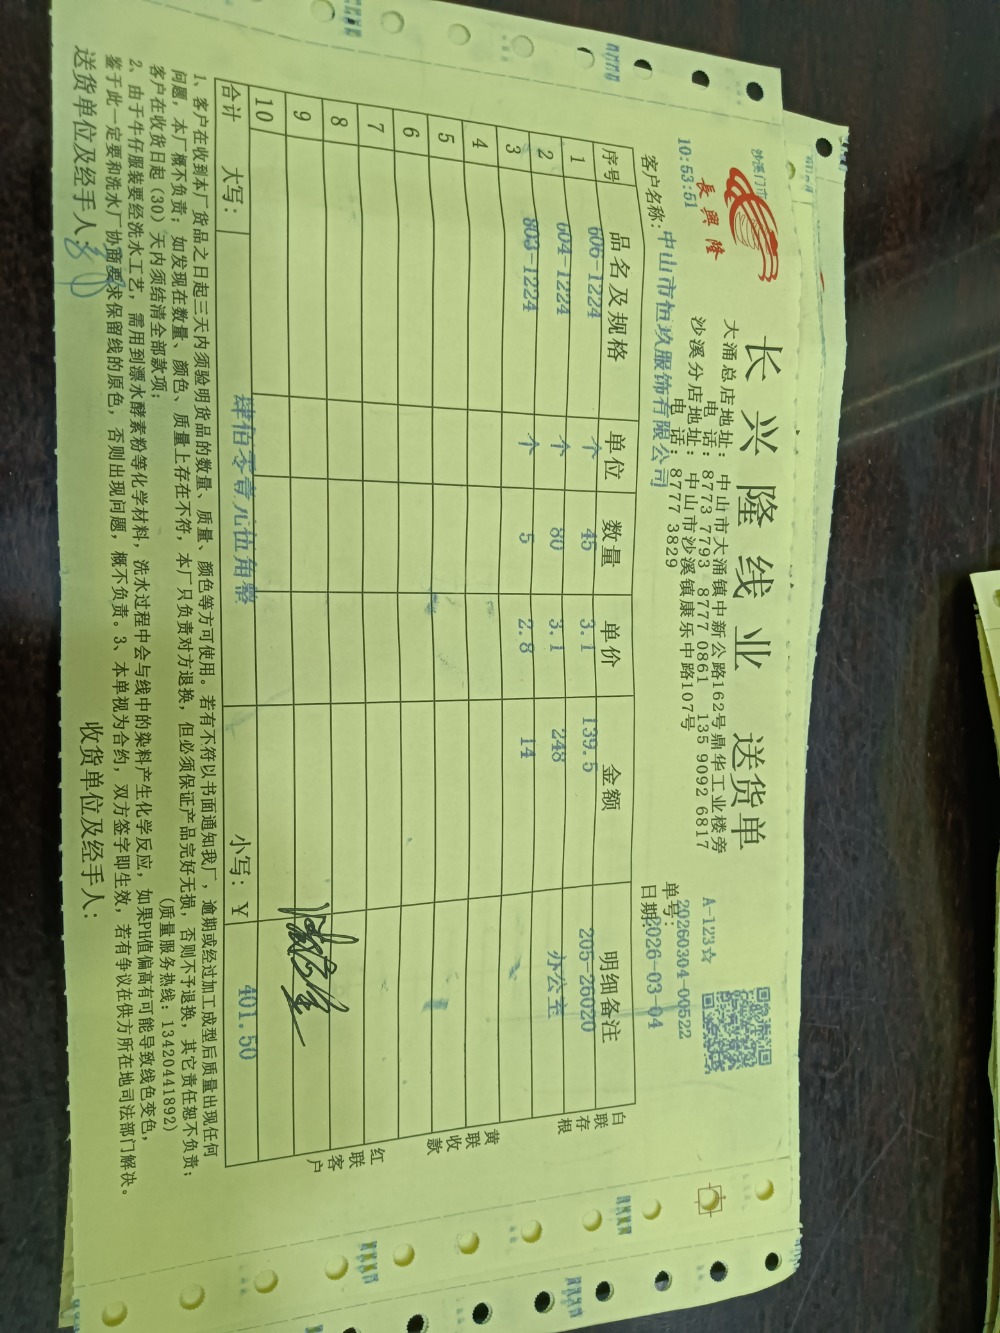 沙溪门市
長興隆
长兴隆线业 送货单
大涌总店地址：中山市大涌镇中新公路162号鼎华工业楼旁
电话：8773 7793 8777 0861 135 9092 6817
沙溪分店地址：中山市沙溪镇康乐中路107号
电话：8777 3829
A-123☆
10:53:51
单号：20260304-00522
客户名称：中山市恒玖服饰有限公司
日期：2026-03-04
序号 品名及规格 单位 数量 单价 金额 明细备注
1 606-1224 个 45 3.1 139.5 205-26020
2 604-1224 个 80 3.1 248 办公室
3 803-1224 个 5 2.8 14
4
5
6
7
8
9
10
合计 大写：肆佰零壹元伍角整 小写：￥ 401.50
白联存根
黄联收款
红联客户
1、客户在收到本厂货品之日起三天内须验明货品的数量、质量、颜色等方可使用。若有不符以书面通知我厂，逾期或经过加工成型后质量出现任何
问题，本厂概不负责；如发现在数量、颜色、质量上存在不符，本厂只负责对方退换，但必须保证产品完好无损，否则不予退换，其它责任恕不负责；
客户在收货日起（30）天内须结清全部款项； （质量服务热线：13420441892）
2、由于牛仔服装要经洗水工艺，需用到漂水酵素粉等化学材料，洗水过程中会与线中的染料产生化学反应，如果PH值偏高有可能导致线色变色，
鉴于此一定要和洗水厂协商要求保留线的原色，否则出现问题，概不负责。3、本单视为合约，双方签字即生效，若有争议在供方所在地司法部门解决。
送货单位及经手人： 收货单位及经手人：